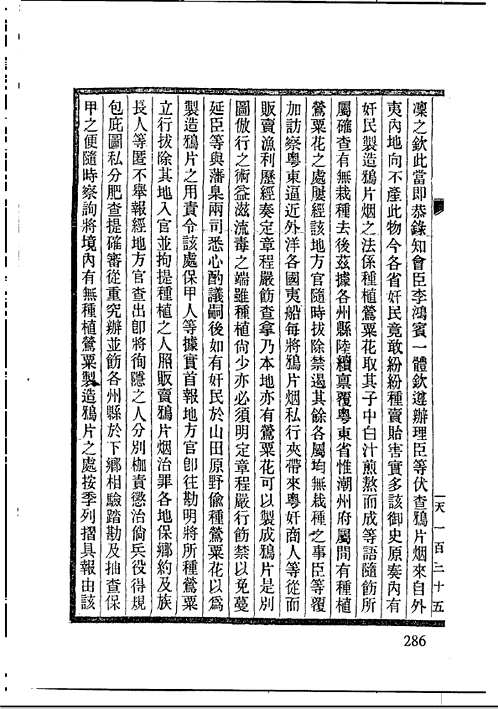 天一百二十五
凜之欽此當即恭錄知會臣李鴻賓一體欽遵辦理臣等伏查鴉片烟來自外
夷內地向不產此物今各省奸民竟敢紛紛種賣貽害實多該御史原奏內有
奸民製造鴉片烟之法係種植鶯粟花取其子中白汁煎熬而成等語隨飭所
屬確查有無栽種去後茲據各州縣陸續稟覆粤東省惟潮州府屬間有種植
鶯粟花之處屢經該地方官隨時拔除禁遏其餘各屬均無栽種之事臣等覆
加訪察粤東逼近外洋各國夷船每將鴉片烟私行夾帶來粤奸商人等從而
販賣漁利歷經奏定章程嚴飭查拿乃本地亦有鶯粟花可以製成鴉片是別
圖倣行之術益滋流毒之端雖種植尙少亦必須明定章程嚴行飭禁以免蔓
延臣等與藩臬兩司悉心酌議嗣後如有奸民於山田原野偸種鶯粟花以爲
製造鴉片之用責令該處保甲人等據實首報地方官卽往勘明將所種鶯粟
立行拔除其地入官並拘提種植之人照販賣鴉片烟治罪各地保鄉約及族
長人等匿不舉報經地方官查出卽將徇隱之人分別枷責懲治倘兵役得規
包庇圖私分肥查提確審從重究辦並飭各州縣於下鄉相驗踏勘及抽查保
甲之便隨時察詢將境內有無種植鶯粟製造鴉片之處按季列摺具報由該
286